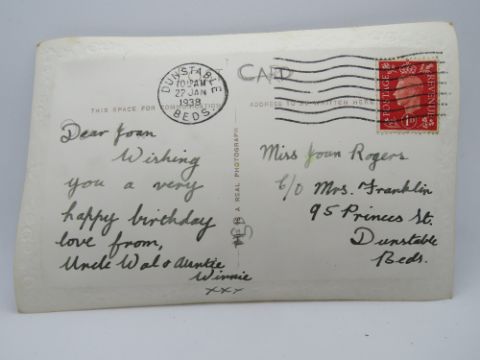 POST CARD
DUNSTABLE
BEDS.
22 JAN
1938
POSTAGE
1D
THIS SPACE FOR
ADDRESS TO BE WRITTEN HERE
IS A REAL PHOTOGRAPH
Dear Joan
Wishing
you a very
happy birthday
love from,
Uncle Wal & Auntie
Winnie
xxx
Miss Joan Rogers
C/O Mrs. Franklin
95 Princes St.
Dunstable
Beds.